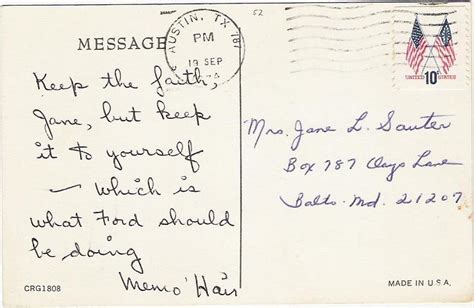 52
MESSAGE
AUSTIN, TX 787
PM
19 SEP
74
UNITED STATES
10c
Keep the faith,
Jane, but keep
it to yourself
— which is
what Ford should
be doing
Memo Hair
Mrs. Jane L. Sauter
Box 787 Clays Lane
Balto. Md. 21207
CRG1808
MADE IN U.S.A.